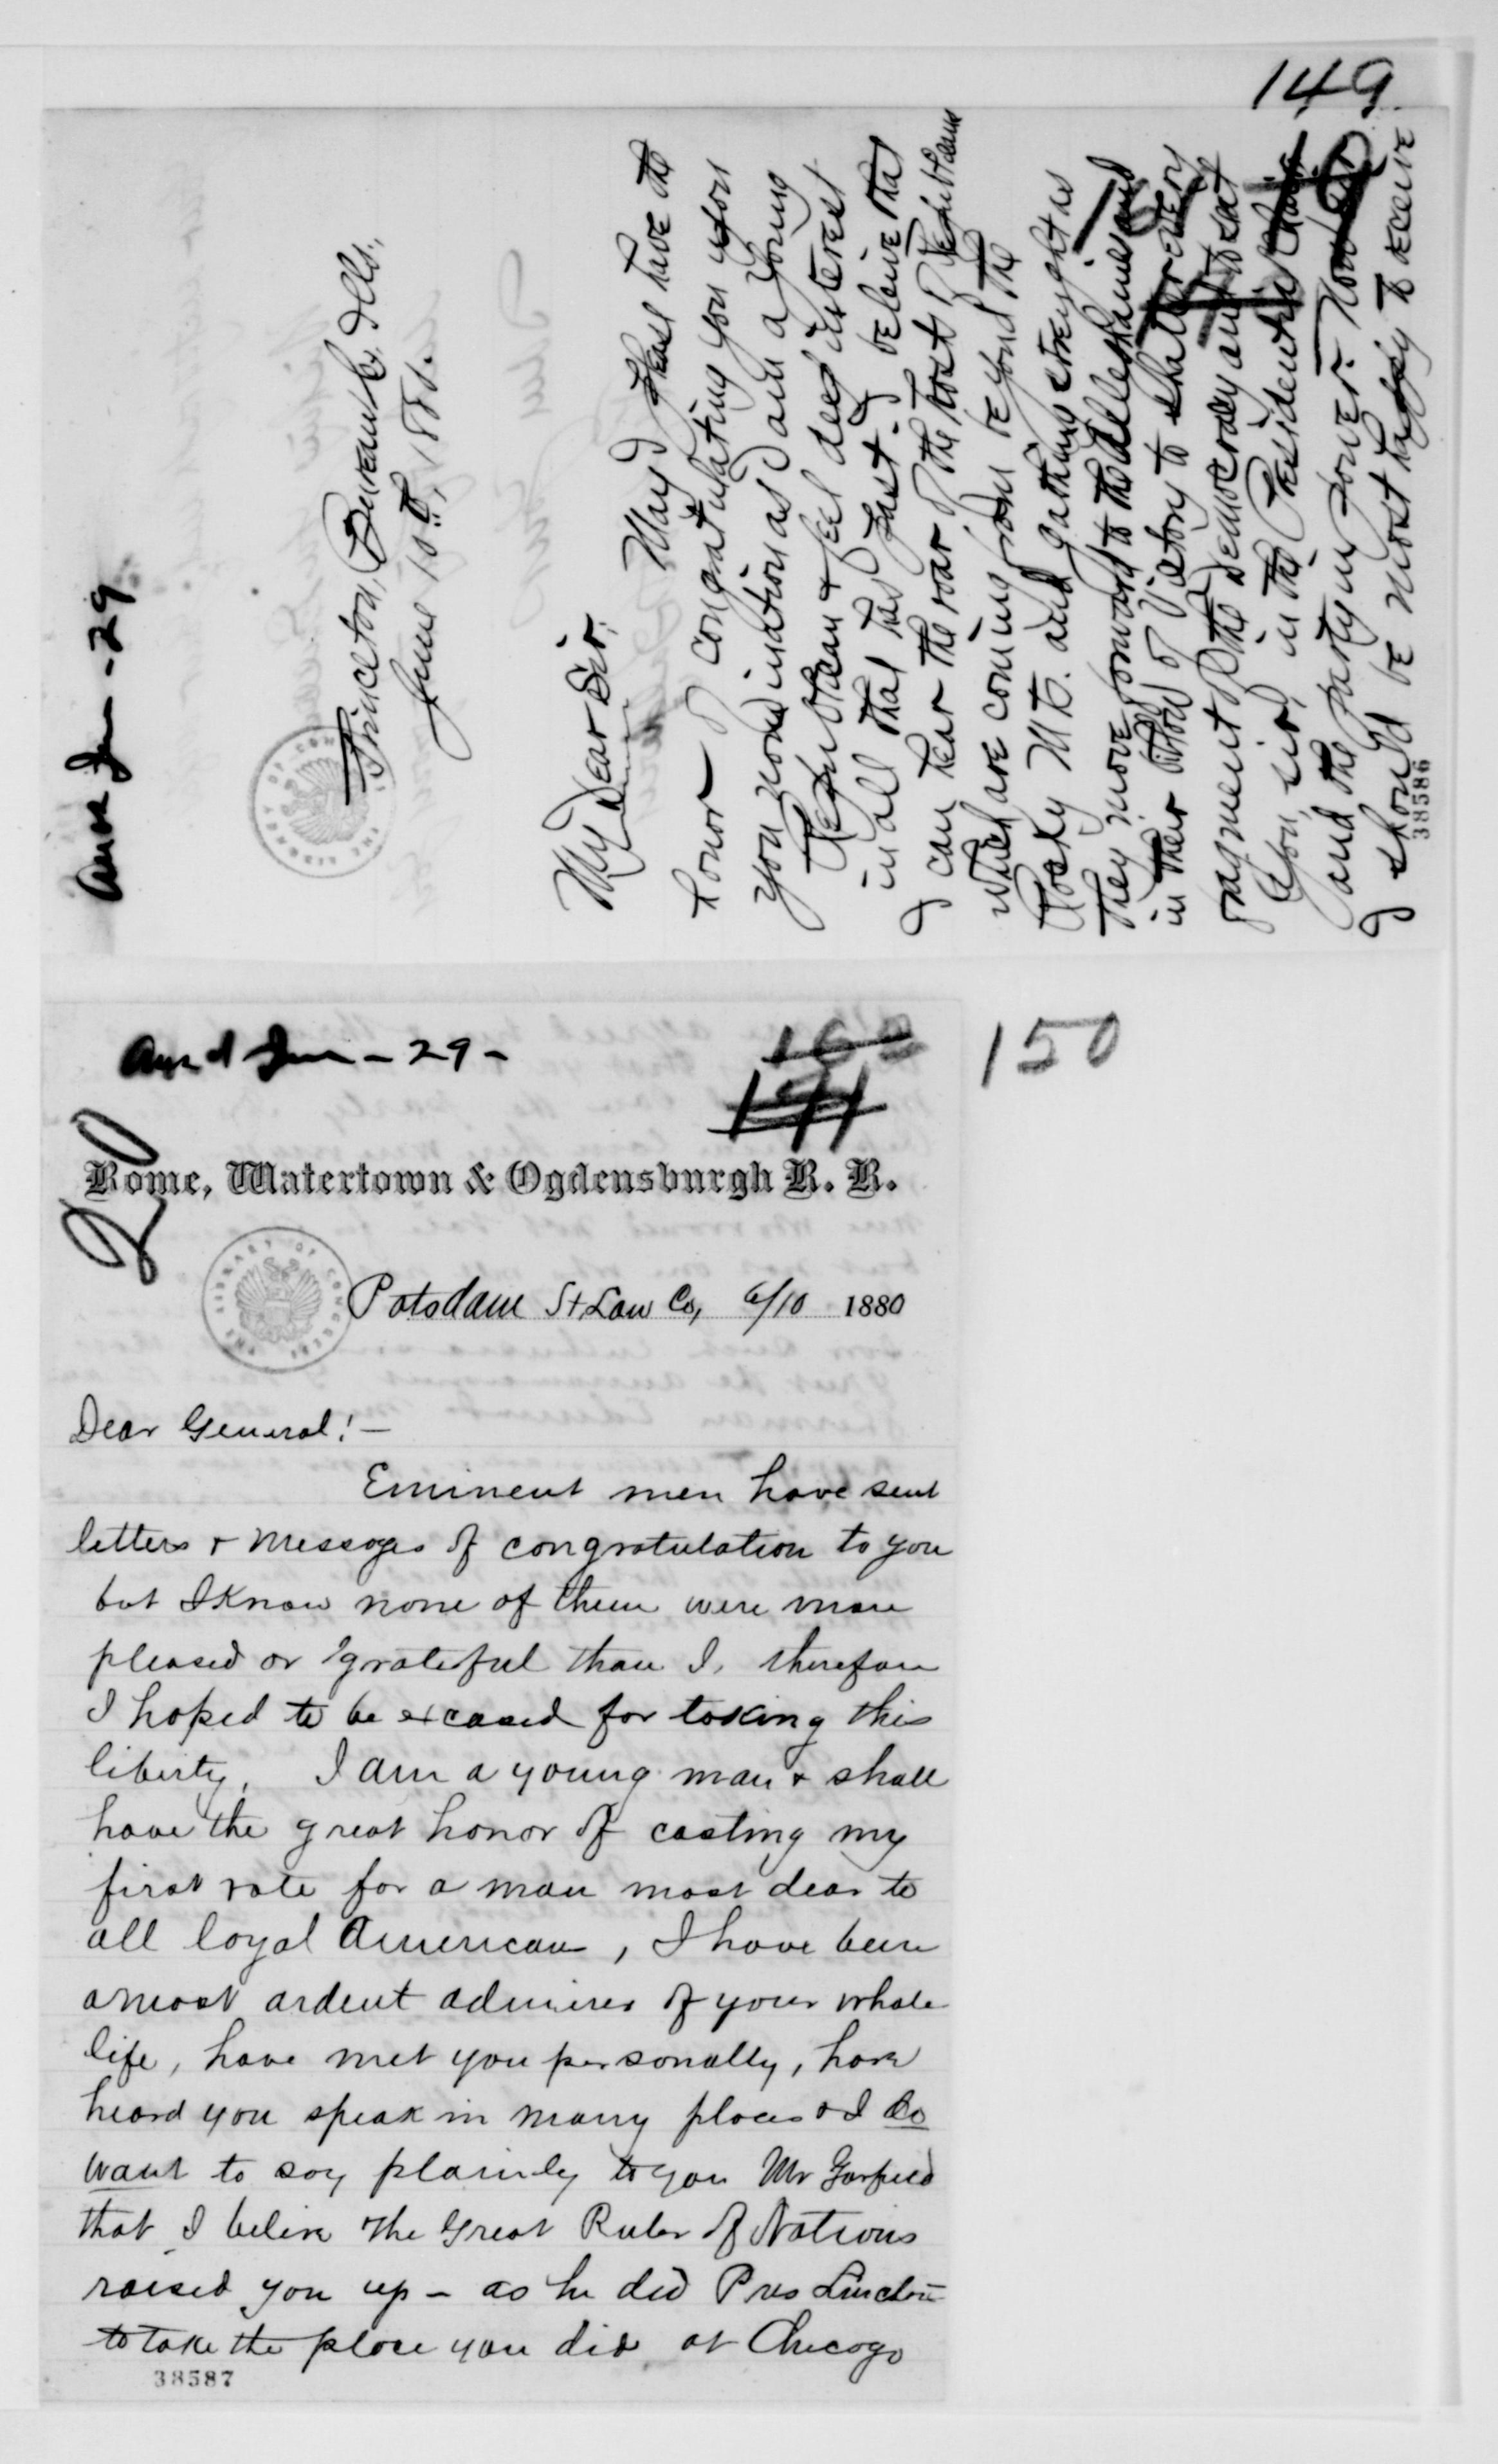 149
Ansd Jun - 29
Princeton, Bureau Co., Ills.,
June 10th, 1880.
My Dear Sir:
May I please have the
honor of congratulating you upon
you nomination as I am a young
Republican & feel deep interest
in all that has past. I beleive that
I can hear the roar of the host of Republicans
which are coming from beyond the
Rocky Mts. and gathing strenght as
they move forward to the Alleghanies and
in their blow of Victory to shatter every
fragment of the democracy and to seat
you, sir, in the Presidential chair
and the party in power.
I should be most happy to receive
38586
Ansd Jun - 29 -
150
20
Rome, Watertown & Ogdensburgh R. R.
Potsdam St Law Co, 6/10 1880
Dear General! —
Eminent men have sent
letters & messages of congratulation to you
but I know none of them were more
pleased or grateful than I, therefore
I hoped to be excused for taking this
liberty. I am a young man & shall
have the great honor of casting my
first vote for a man most dear to
all loyal Americans, I have been
a most ardent admirer of your whole
life, have met you personally, have
heard you speak in many places & I do
want to say plainly to you Mr Garfield
that I belive the Great Ruler of Nations
raised you up - as he did Pres Lincoln -
to take the place you did at Chicago
38587